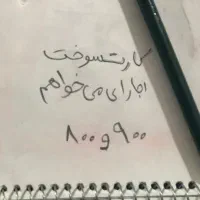 کارت سوخت
اجارای می خواهم
۹۰۰ و ۸۰۰